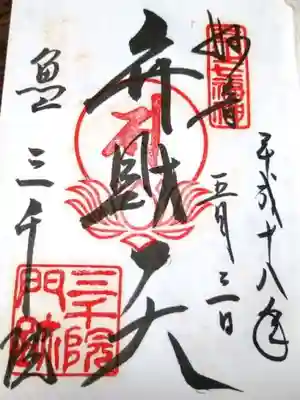 平成十八年
五月三日
妙音
弁財天
魚山 三千院
三千院
門跡